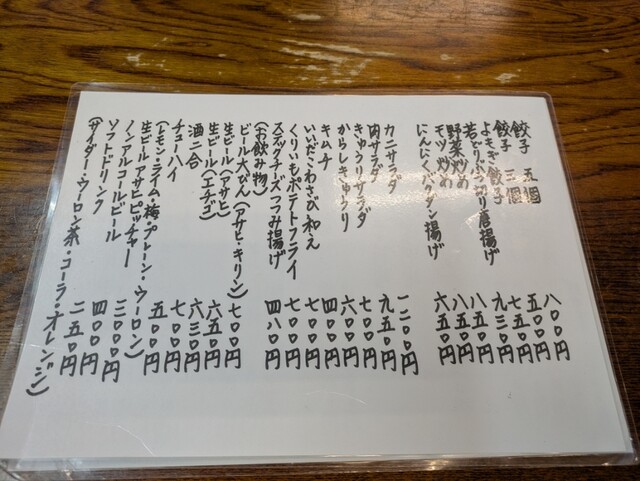 餃子 五個 八〇〇円
餃子 三個 五〇〇円
よもぎ餃子 七五〇円
若どりぶつ切り唐揚げ 九三〇円
野菜炒め 八五〇円
モツ炒め 八五〇円
にんにくバクダン揚げ 六五〇円
カニサラダ 一二〇〇円
肉サラダ 九五〇円
きゅうりサラダ 七〇〇円
からしきゅうり 六〇〇円
キムチ 四〇〇円
いいだこわさび和え 七〇〇円
くりいもポテトフライ 七〇〇円
スティックチーズつつみ揚げ 四八〇円
(お飲み物)
ビール大びん(アサヒ・キリン) 七〇〇円
生ビール(アサヒ) 六五〇円
生ビール(エチゴ) 六三〇円
酒二合 七〇〇円
チューハイ 五〇〇円
(レモン・ライム・梅・プレーン・ウーロン)
生ビール アサヒピッチャー 三〇〇〇円
ノンアルコールビール 四〇〇円
ソフトドリンク 二五〇円
(サイダー・ウーロン茶・コーラ・オレンジン)